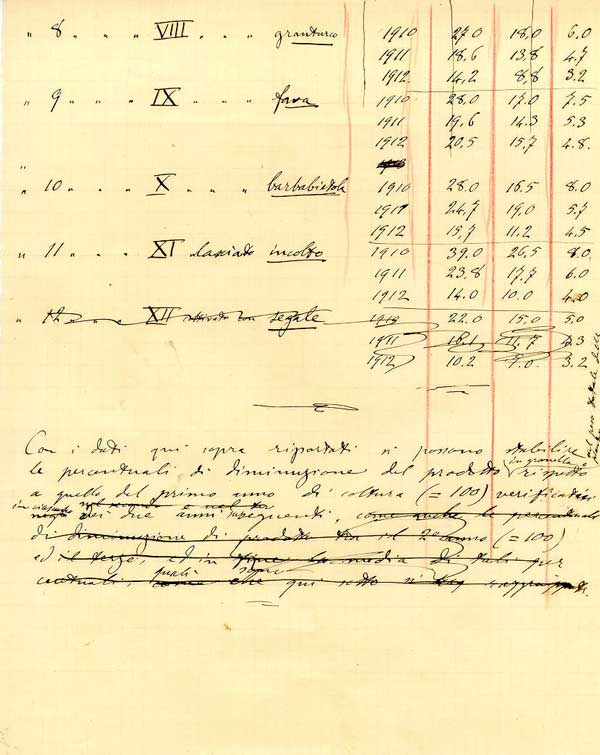 " 8 " " " VIII " " " granturco 1910 27.0 18,0 6.0
1911 18.6 13,8 4.7
1912 14,2 8,8 3.2
" 9 " " " IX " " " fava 1910 28,0 17.0 7.5
1911 19,6 14.3 5.3
1912 20,5 15,7 4.8.
"
" 10 " " " X " " " barbabietola 1910 28.0 16,5 8.0
1911 24,7 19,0 5,7
1912 15,7 11.2 4.5
" 11 " " " XI " lasciato incolto 1910 39,0 26,5 8,0
1911 23.8 17,7 6.0
1912 14.0 10,0 4.0
" 12 " " " XII segale 1910 22.0 15,0 5,0
1911 16.1 11.7 4.3
1912 10.2 7.0 3.2
Con i dati qui sopra riportati si possono stabilire
in granella
le percentuali di diminuzione del prodotto rispetto
a quello del primo anno di coltura (= 100) verificatesi
in ciascuno
dei due anni susseguenti, come anche le percentuali
di diminuzione di prodotto tra il 2º anno (= 100)
ed il terzo, ed in fine la media di tali per
quali sono
centuali, come che qui sotto si raggruppati.